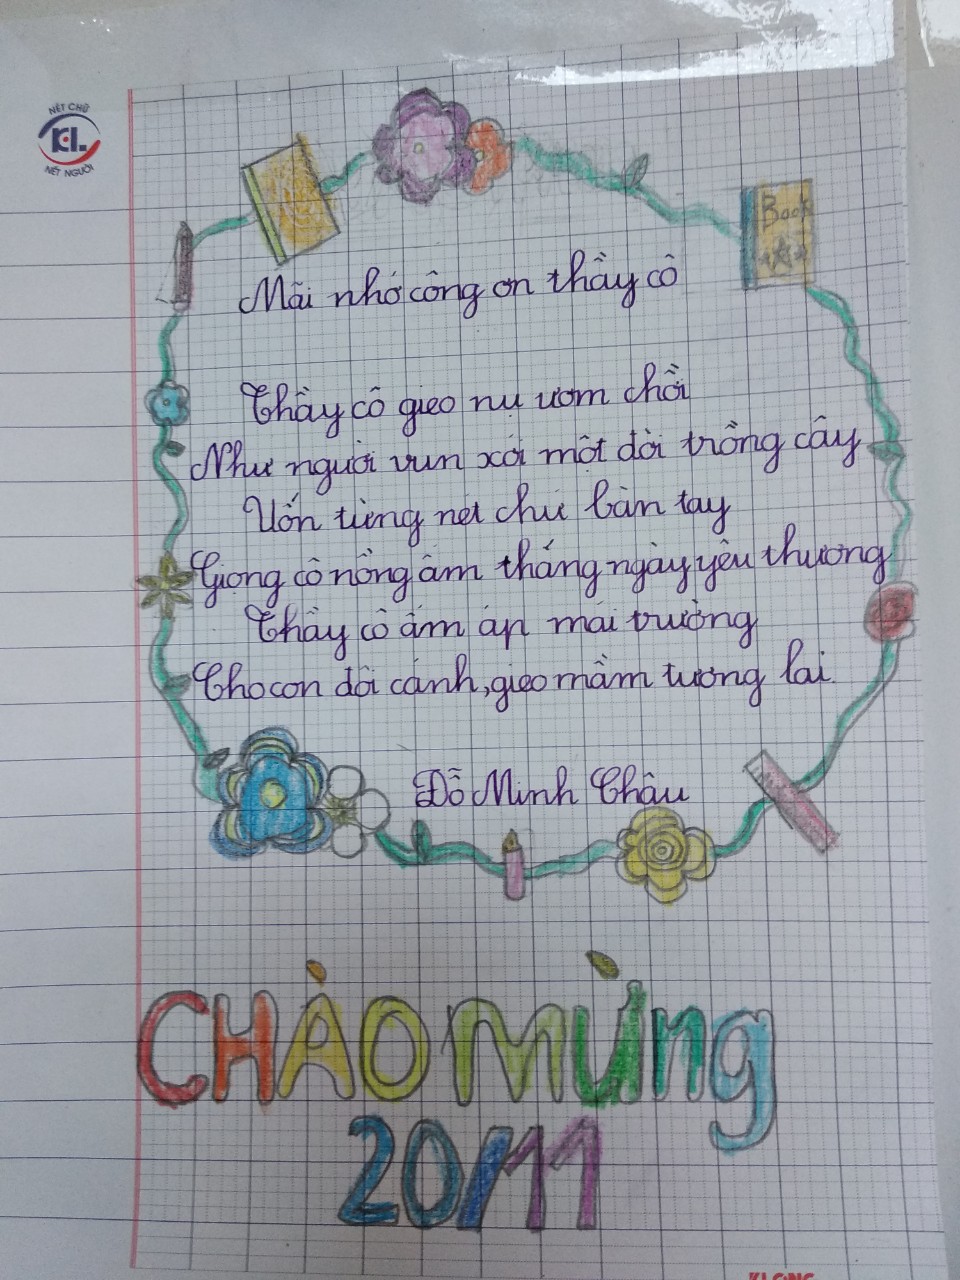 NÉT CHỮ
K·L
NÉT NGƯỜI
Book
Mãi nhớ công ơn thầy cô
Thầy cô gieo nụ ươm chồi
Như người vun xới một đời trồng cây
Uốn từng nét chữ bàn tay
Giọng cô nồng ấm tháng ngày yêu thương
Thầy cô ấm áp mái trường
Cho con đôi cánh, gieo mầm tương lai
Đỗ Minh Châu
CHÀO MỪNG
20/11